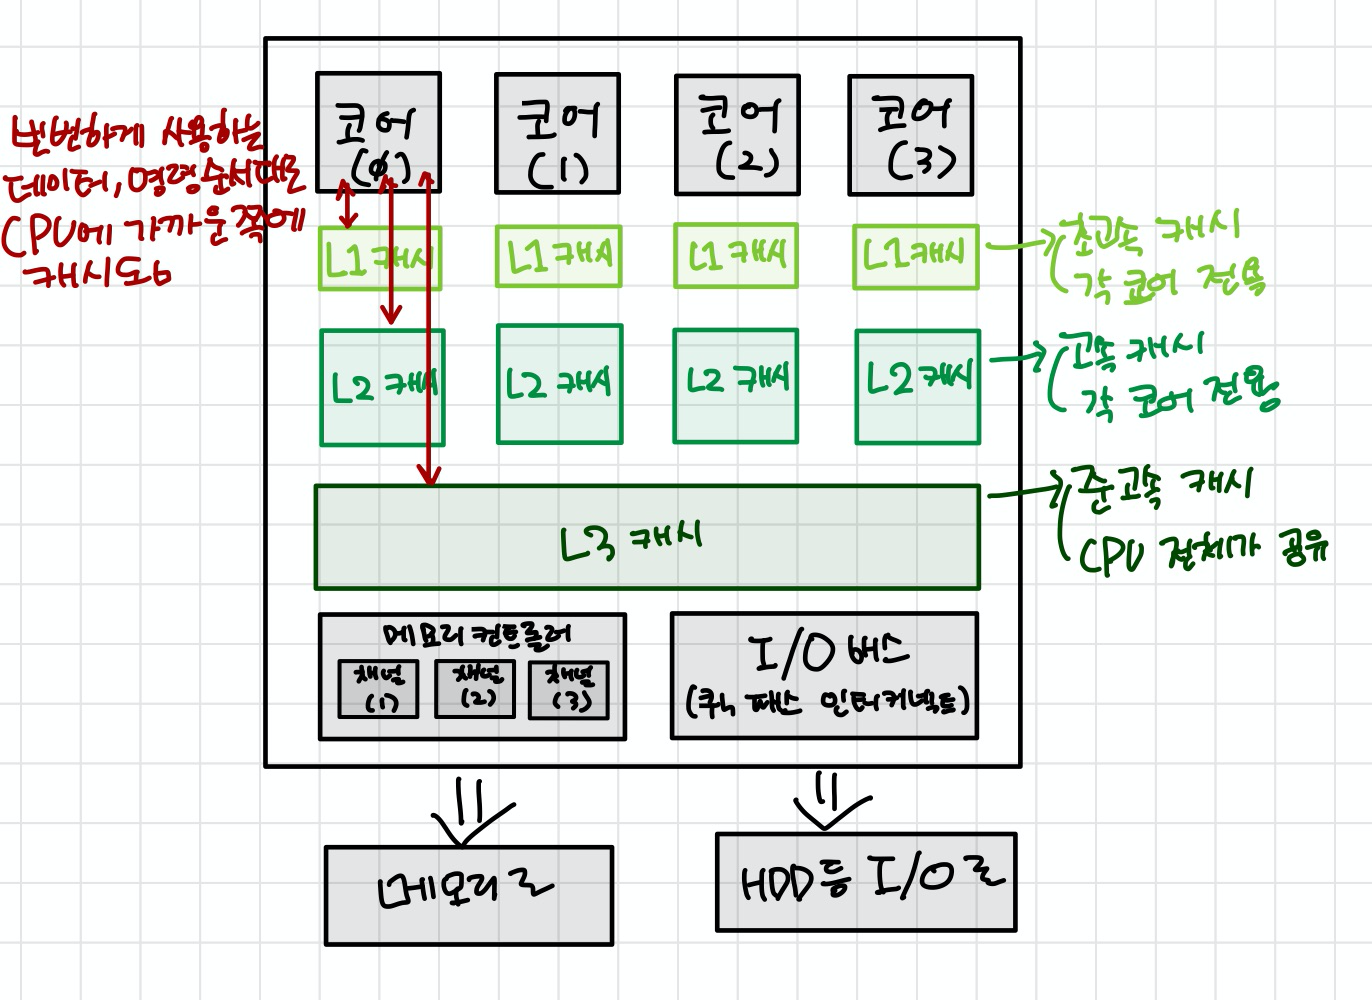 코어
(0)
코어
(1)
코어
(2)
코어
(3)
빈번하게 사용하는
데이터, 명령순서대로
CPU에 가까운쪽에
캐시도6
L1 캐시
L1 캐시
L1 캐시
L1 캐시
초고속 캐시
각 코어 전용
L2 캐시
L2 캐시
L2 캐시
L2 캐시
고속 캐시
각 코어 전용
L3 캐시
준고속 캐시
CPU 전체가 공유
메모리 컨트롤러
채널
(1)
채널
(2)
채널
(3)
I/O 버스
(퀵 패스 인터커넥트)
메모리로
HDD등 I/O로